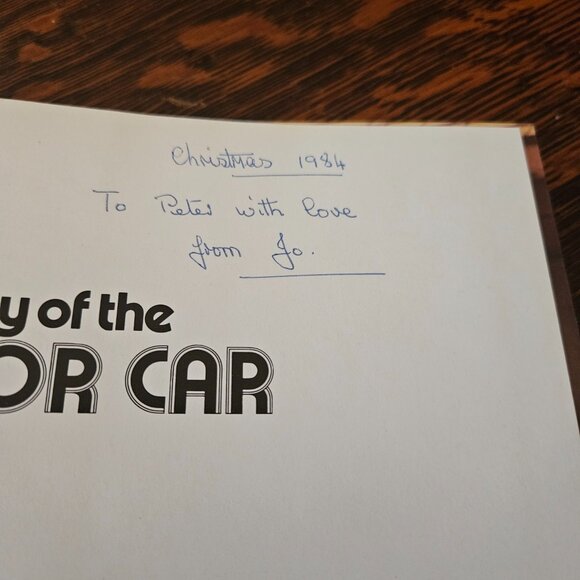 Christmas 1984
To Peter with love
from Jo.
y of the
OR CAR